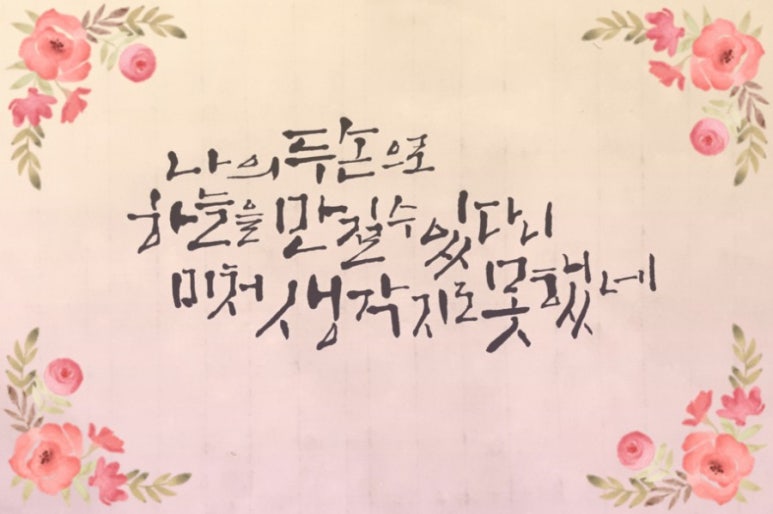 나의 두손으로
하늘을 만질 수 있다니
미처 생각지도 못했네